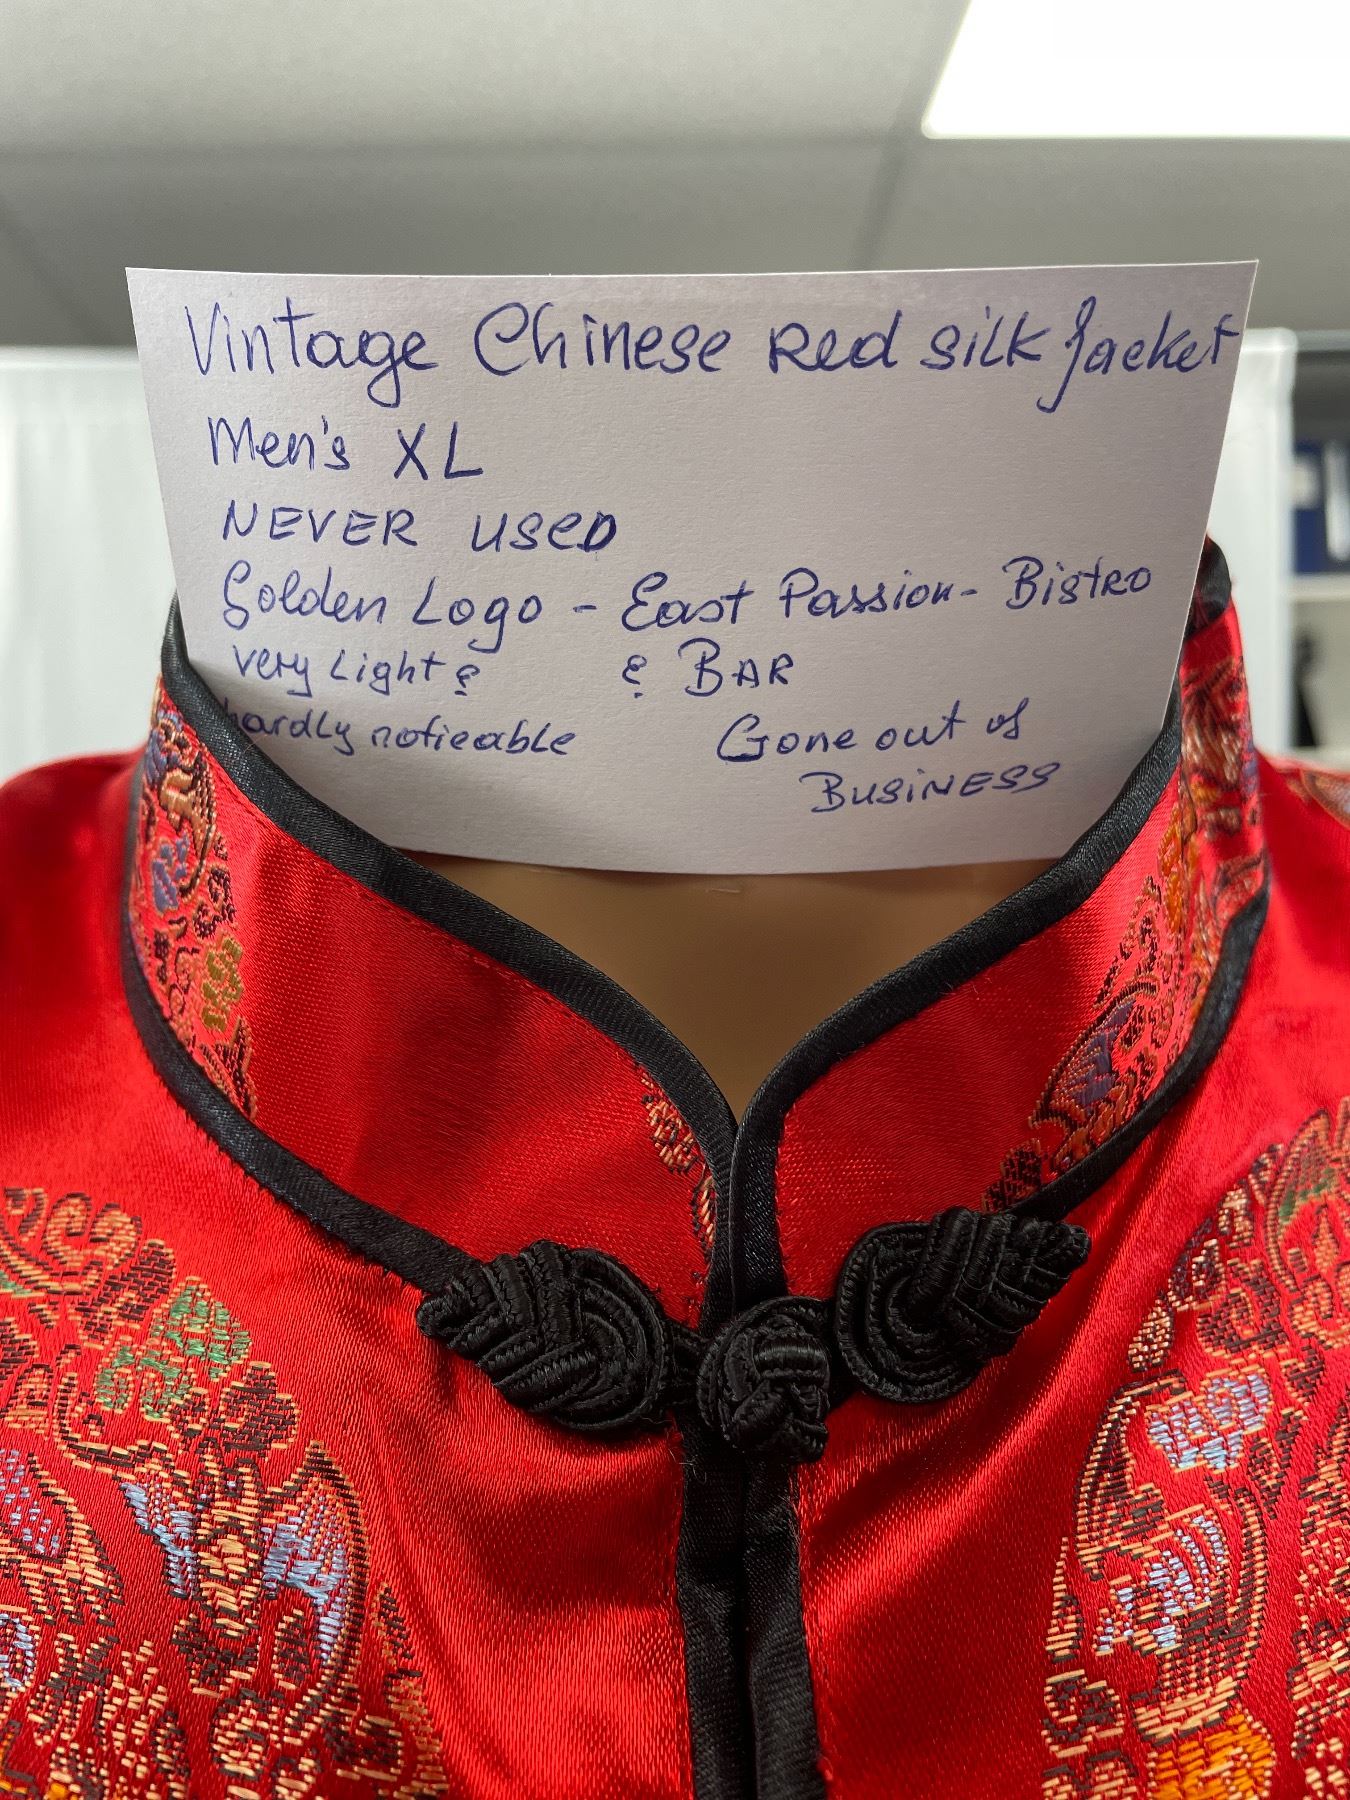 Vintage Chinese Red silk Jacket
Men's XL
NEVER USED
Golden Logo - East Passion - Bistro
very Light & & BAR
hardly noticeable Gone out of
BUSINESS